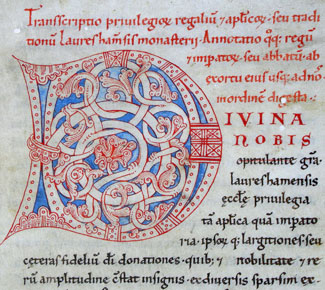 Transcriptio privilegioꝝ regaliũ ⁊ ap̃licoꝝ · seu tradi
tionũ Laureshamẽsis monasterij · Annotatio q̃q; regũ
⁊ impatoꝝ · seu abbatũ · ab
exortu eius usq; ad nõ
in ordinẽ digesta ·
DIVINA
NOBIS
opitulante gr̃a
laureshamensis
eccłę privilegia
tã ap̃lica quã imp̃ato
ria · ipsoꝝ q; largitiones · seu
ceteras fidelium dĩ donationes · quib; ⁊ nobilitate ⁊ re
rũ amplitudine cñstat insignis · ex diversis sparsim ex